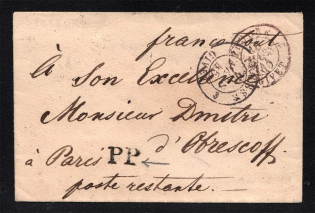 franco tout
à Son Excellence
Monsieur Dmitri
d'Obrescoff
à Paris PP
poste restante.